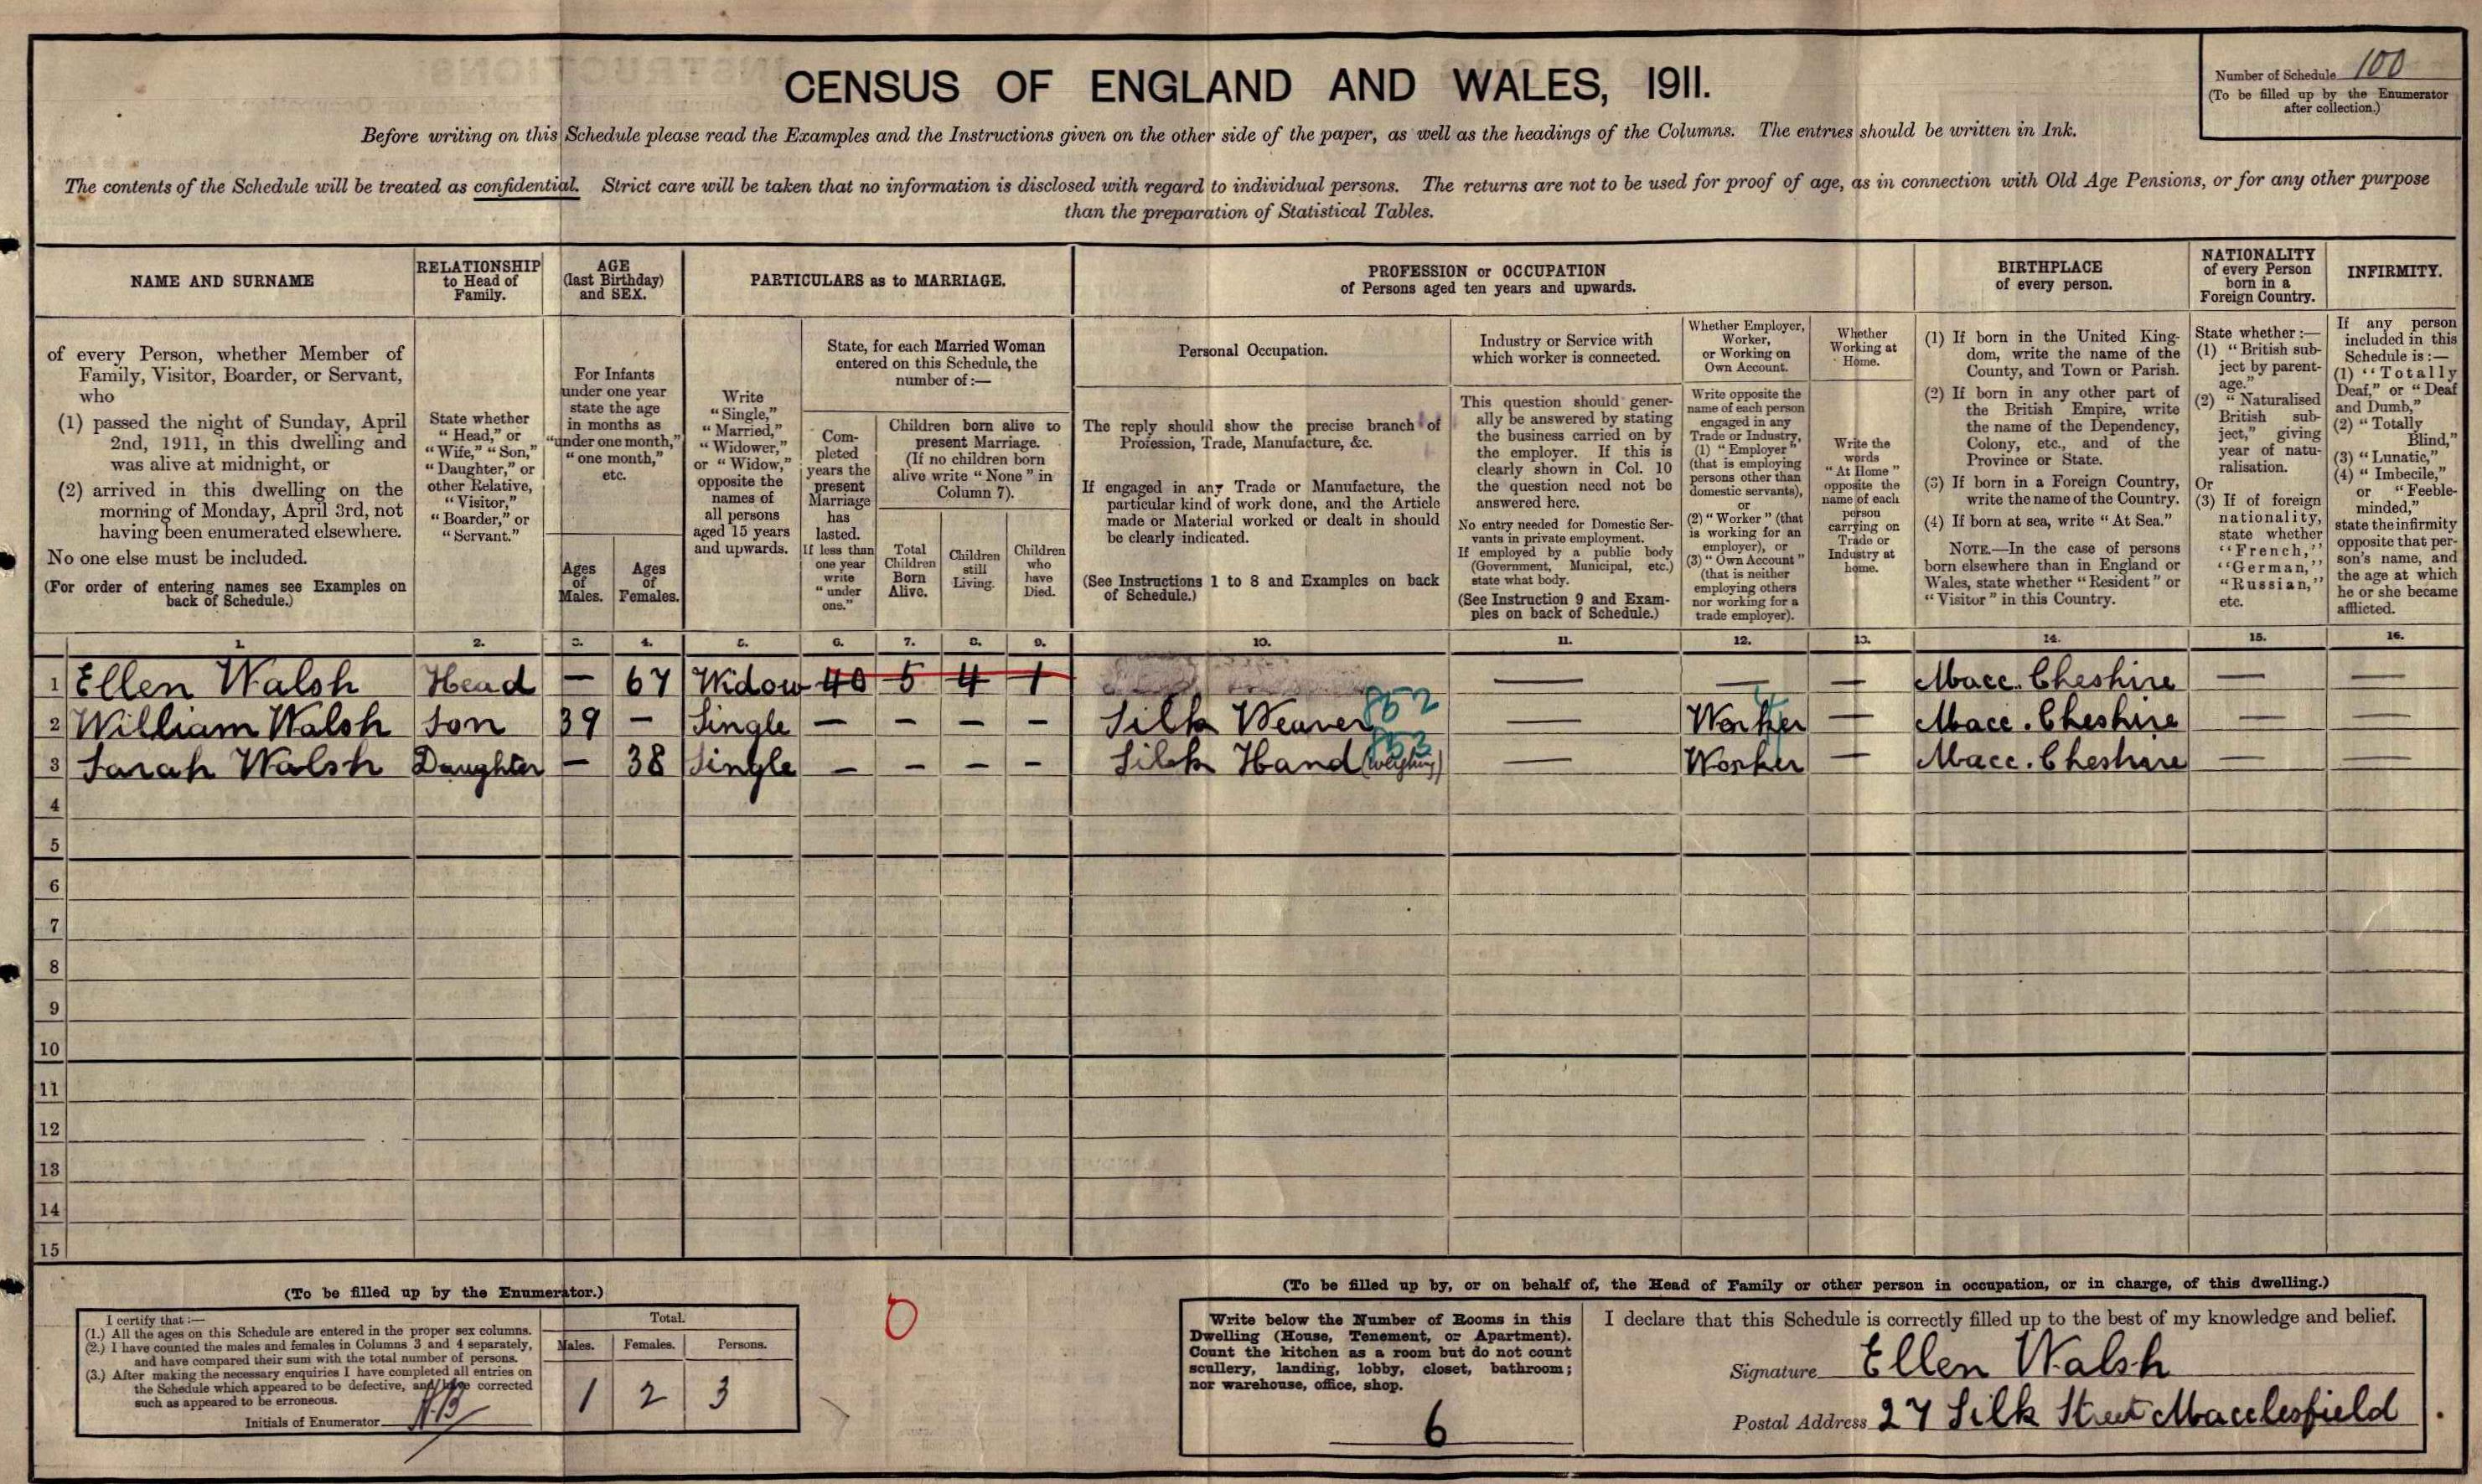 CENSUS OF ENGLAND AND WALES, 1911.
Number of Schedule 100
(To be filled up by the Enumerator
after collection.)
Before writing on this Schedule please read the Examples and the Instructions given on the other side of the paper, as well as the headings of the Columns. The entries should be written in Ink.
The contents of the Schedule will be treated as confidential. Strict care will be taken that no information is disclosed with regard to individual persons. The returns are not to be used for proof of age, as in connection with Old Age Pensions, or for any other purpose
than the preparation of Statistical Tables.
NAME AND SURNAME
of every Person, whether Member of
Family, Visitor, Boarder, or Servant,
who
(1) passed the night of Sunday, April
2nd, 1911, in this dwelling and
was alive at midnight, or
(2) arrived in this dwelling on the
morning of Monday, April 3rd, not
having been enumerated elsewhere.
No one else must be included.
(For order of entering names see Examples on
back of Schedule.)
RELATIONSHIP
to Head of
Family.
State whether
"Head," or
"Wife," "Son,"
"Daughter," or
other Relative,
"Visitor,"
"Boarder," or
"Servant."
AGE
(last Birthday)
and SEX.
For Infants
under one year
state the age
in months as
"under one month,"
"one month,"
etc.
Ages
of
Males.
Ages
of
Females.
PARTICULARS as to MARRIAGE.
Write
"Single,"
"Married,"
"Widower,"
or "Widow,"
opposite the
names of
all persons
aged 15 years
and upwards.
State, for each Married Woman
entered on this Schedule, the
number of :—
Com-
pleted
years the
present
Marriage
has
lasted.
If less than
one year
write
"under
one."
Children born alive to
present Marriage.
(If no children born
alive write "None" in
Column 7).
Total
Children
Born
Alive.
Children
still
Living.
Children
who
have
Died.
PROFESSION or OCCUPATION
of Persons aged ten years and upwards.
Personal Occupation.
The reply should show the precise branch of
Profession, Trade, Manufacture, &c.
If engaged in any Trade or Manufacture, the
particular kind of work done, and the Article
made or Material worked or dealt in should
be clearly indicated.
(See Instructions 1 to 8 and Examples on back
of Schedule.)
Industry or Service with
which worker is connected.
This question should gener-
ally be answered by stating
the business carried on by
the employer. If this is
clearly shown in Col. 10
the question need not be
answered here.
No entry needed for Domestic Ser-
vants in private employment.
If employed by a public body
(Government, Municipal, etc.)
state what body.
(See Instruction 9 and Exam-
ples on back of Schedule.)
Whether Employer,
Worker,
or Working on
Own Account.
Write opposite the
name of each person
engaged in any
Trade or Industry,
(1) "Employer"
(that is employing
persons other than
domestic servants),
or
(2) "Worker" (that
is working for an
employer), or
(3) "Own Account"
(that is neither
employing others
nor working for a
trade employer).
Whether
Working at
Home.
Write the
words
"At Home"
opposite the
name of each
person
carrying on
Trade or
Industry at
home.
BIRTHPLACE
of every person.
(1) If born in the United King-
dom, write the name of the
County, and Town or Parish.
(2) If born in any other part of
the British Empire, write
the name of the Dependency,
Colony, etc., and of the
Province or State.
(3) If born in a Foreign Country,
write the name of the Country.
(4) If born at sea, write "At Sea."
NOTE.—In the case of persons
born elsewhere than in England or
Wales, state whether "Resident" or
"Visitor" in this Country.
NATIONALITY
of every Person
born in a
Foreign Country.
State whether :—
(1) "British sub-
ject by parent-
age."
(2) "Naturalised
British sub-
ject," giving
year of natu-
ralisation.
Or
(3) If of foreign
nationality,
state whether
"French,"
"German,"
"Russian,"
etc.
INFIRMITY.
If any person
included in this
Schedule is :—
(1) "Totally
Deaf," or "Deaf
and Dumb,"
(2) "Totally
Blind,"
(3) "Lunatic,"
(4) "Imbecile,"
or "Feeble-
minded,"
state the infirmity
opposite that per-
son's name, and
the age at which
he or she became
afflicted.
1. 2. 3. 4. 5. 6. 7. 8. 9. 10. 11. 12. 13. 14. 15. 16.
1 Ellen Walsh Head — 67 Widow 40 5 4 1 — — — Macc. Cheshire — —
2 William Walsh Son 39 – Single – – – – Silk Weaver 852 — Worker — Macc. Cheshire — —
3 Sarah Walsh Daughter – 38 Single – – – – Silk Hand — Worker — Macc. Cheshire — —
4
5
6
7
8
9
10
11
12
13
14
15
(To be filled up by the Enumerator.)
I certify that :—
(1.) All the ages on this Schedule are entered in the proper sex columns.
(2.) I have counted the males and females in Columns 3 and 4 separately,
and have compared their sum with the total number of persons.
(3.) After making the necessary enquiries I have completed all entries on
the Schedule which appeared to be defective, and have corrected
such as appeared to be erroneous.
Initials of Enumerator
Total.
Males. Females. Persons.
1 2 3
0
(To be filled up by, or on behalf of, the Head of Family or other person in occupation, or in charge, of this dwelling.)
Write below the Number of Rooms in this
Dwelling (House, Tenement, or Apartment).
Count the kitchen as a room but do not count
scullery, landing, lobby, closet, bathroom;
nor warehouse, office, shop.
6
I declare that this Schedule is correctly filled up to the best of my knowledge and belief.
Signature Ellen Walsh
Postal Address 27 Silk Street Macclesfield